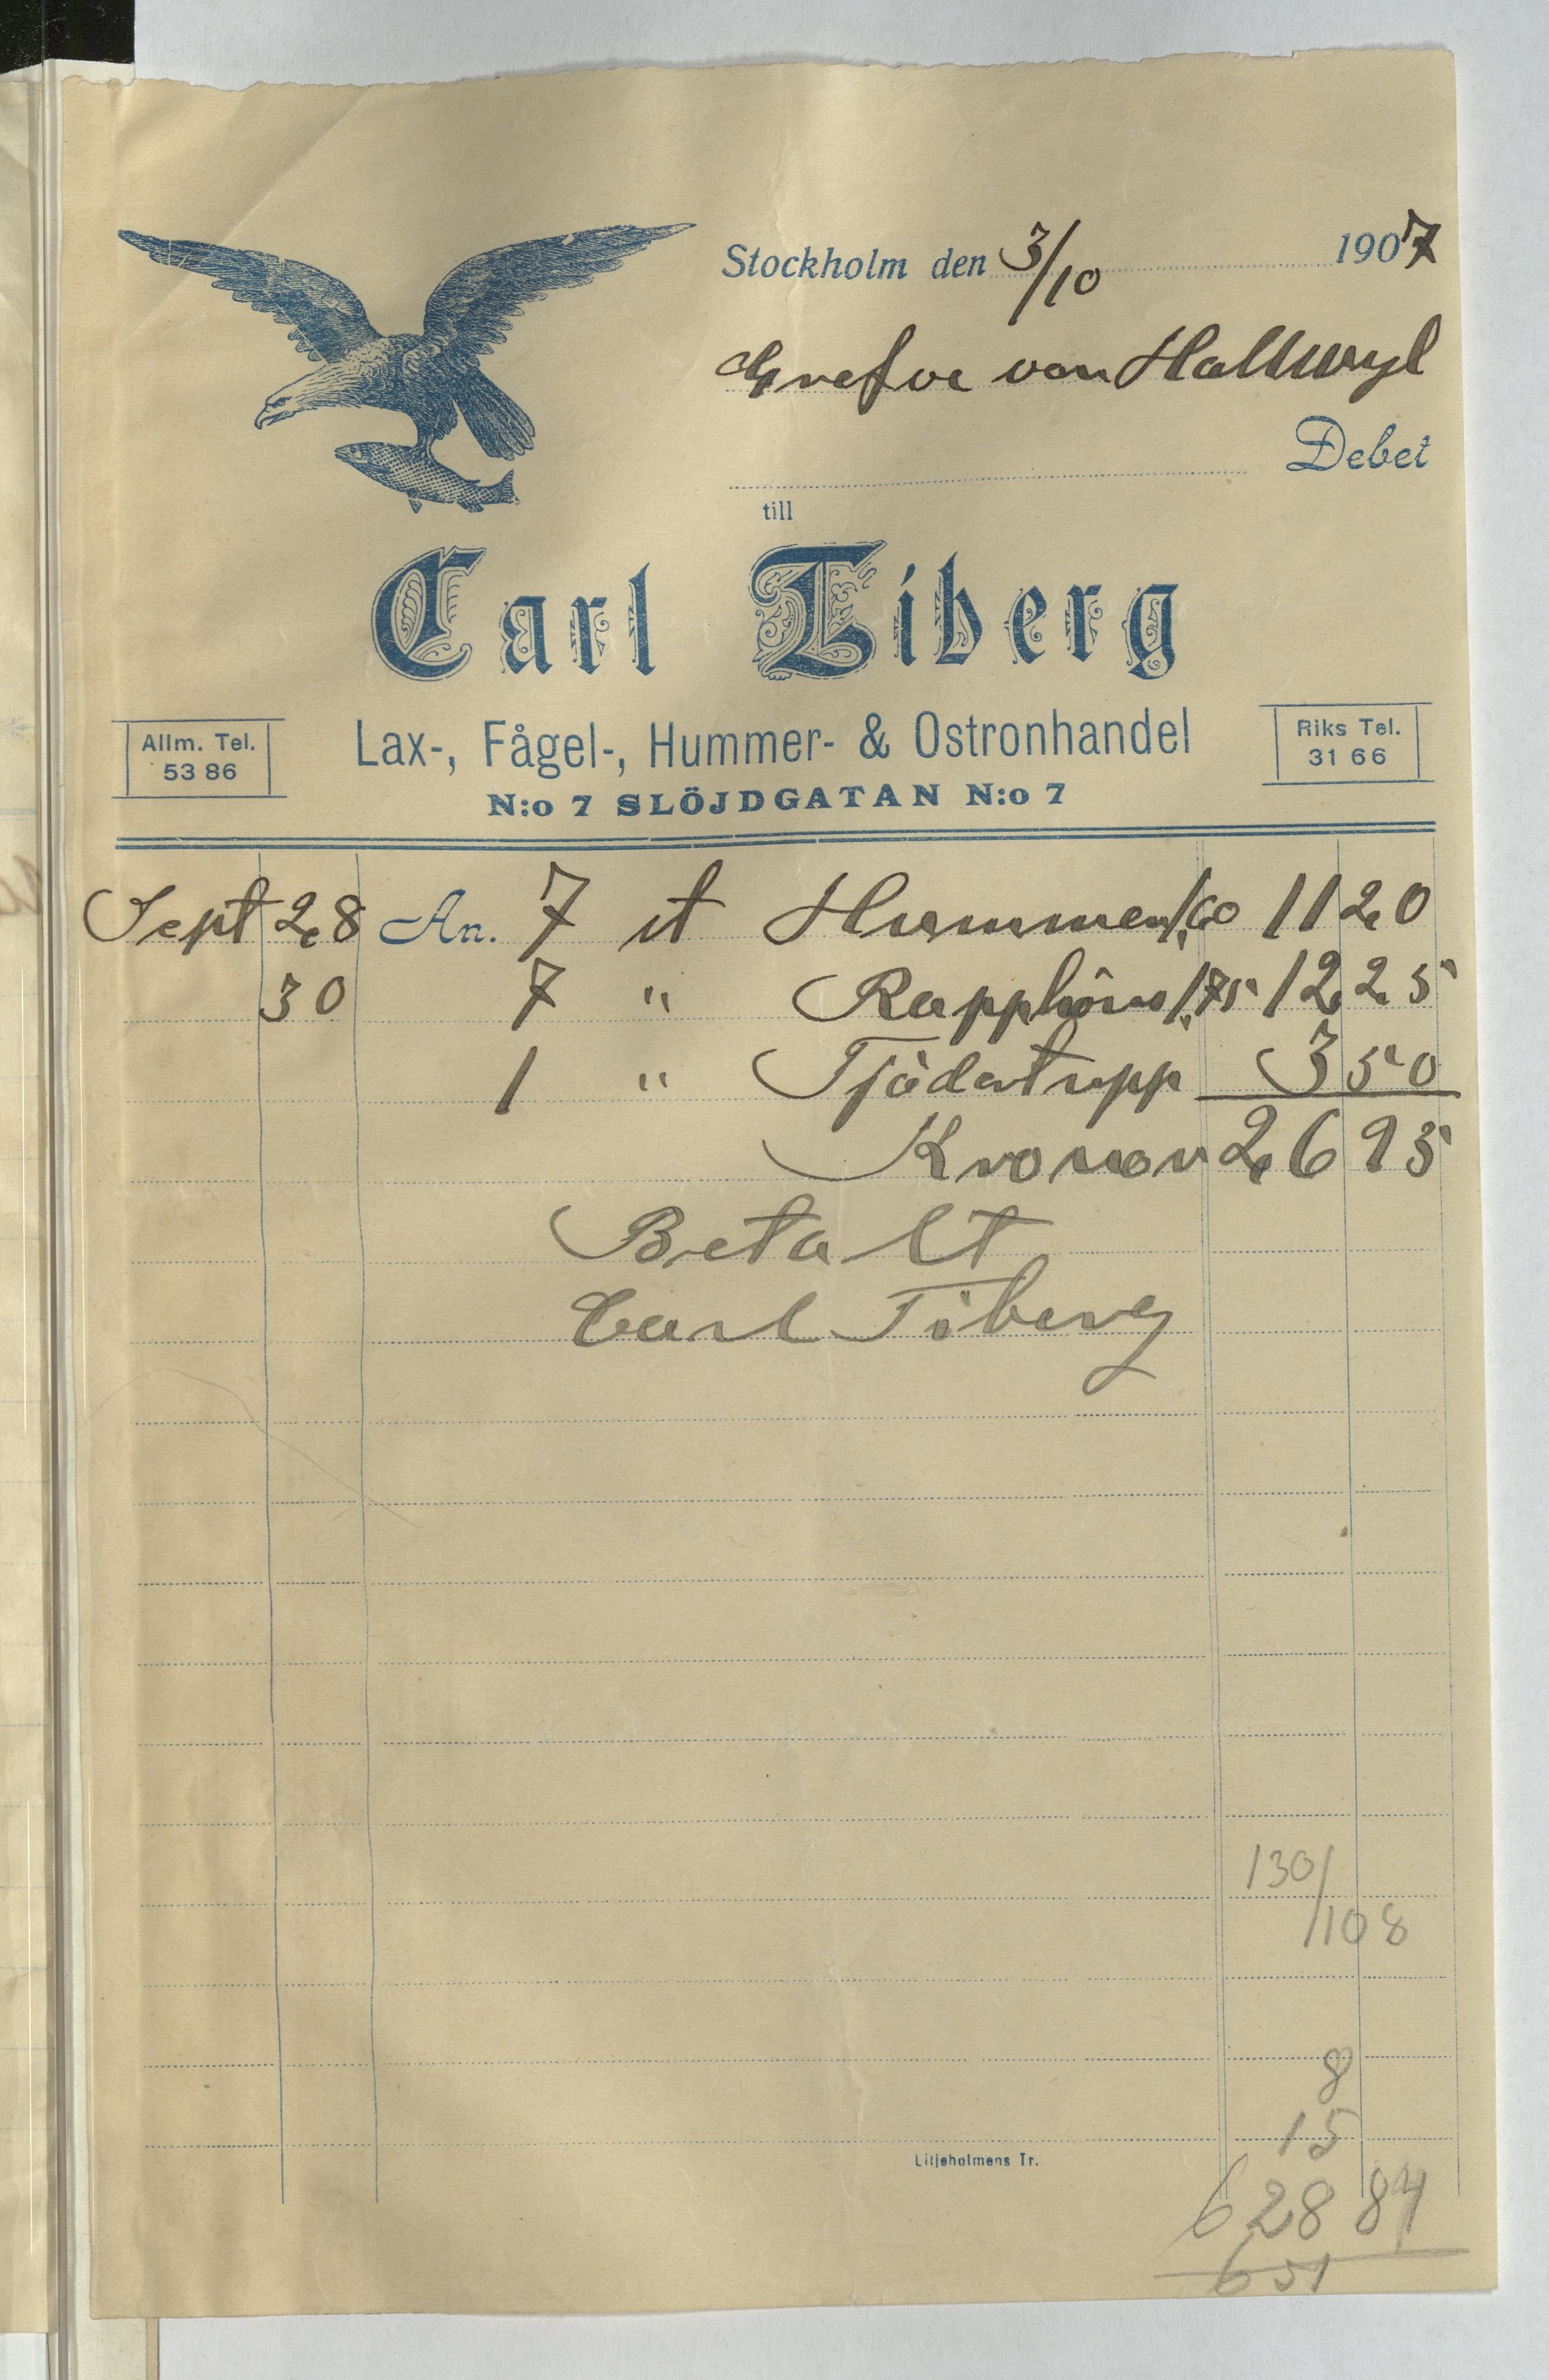 Stockholm den 3/10 1907
Grefve von Hallwyl
Debet
till
Carl Tiberg
Allm. Tel.
53 86
Lax-, Fågel-, Hummer- & Ostronhandel
Riks Tel.
31 66
N:o 7 SLÖJDGATAN N:o 7
Sept 28 An. 7 st Hummer 1,60 11 20
30 7 " Rapphöns 1,75 12 25
1 " Tjädertupp 3 50
Kronor 26 95
Betalt
Carl Tiberg
130/
/108
8
15
Liljeholmens Tr.
628 84
651